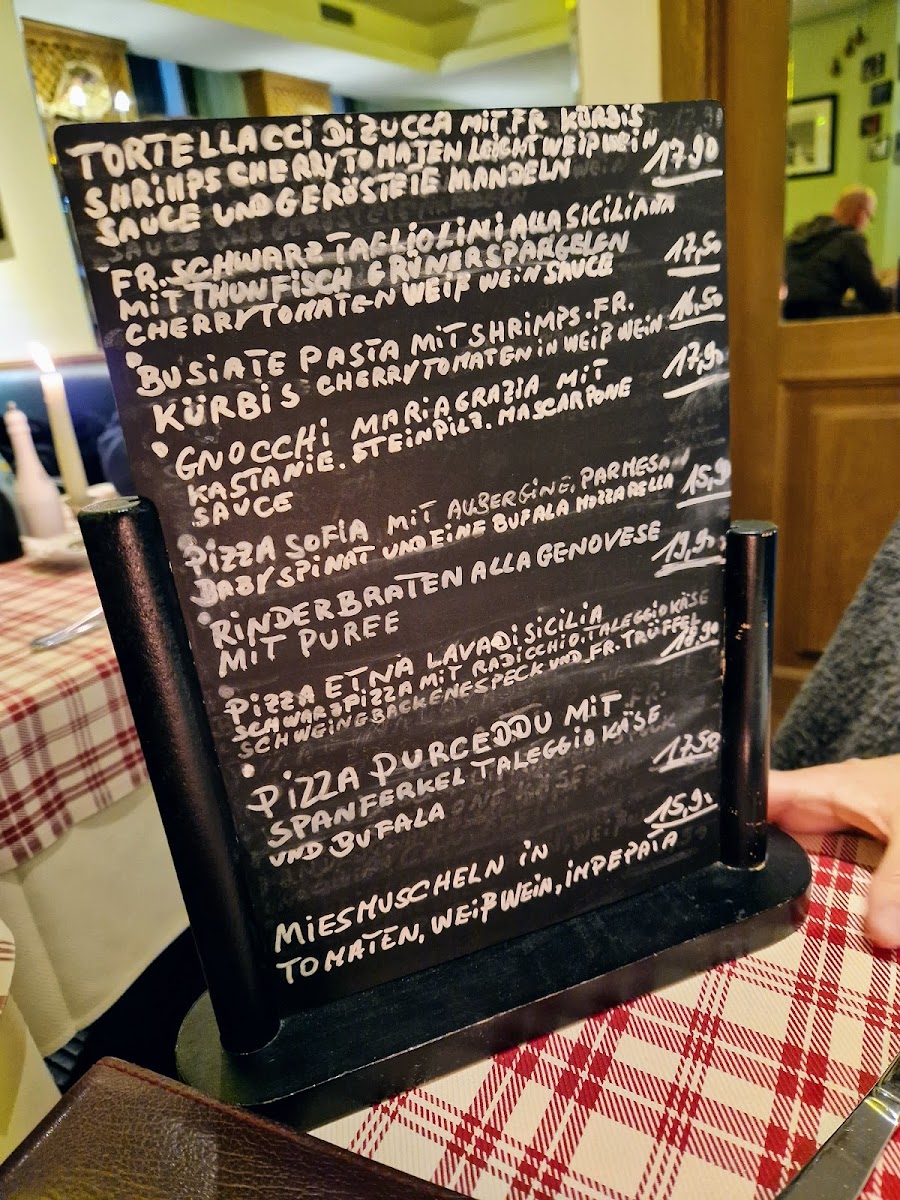 TORTELLACCI DI ZUCCA MIT FR KÜRBIS
SHRIMPS CHERRYTOMATEN LEICHT WEIßWEIN
SAUCE UND GERÖSTETE MANDELN 17,90
FR. SCHWARZ TAGLIOLINI ALLA SICILIANA
MIT THUNFISCH GRÜNERSPARGELN 17,50
CHERRYTOMATEN WEIß WEIN SAUCE
• BUSIATE PASTA MIT SHRIMPS. FR. 16,50
KÜRBIS CHERRYTOMATEN IN WEIß WEIN
• GNOCCHI MARIAGRAZIA MIT 17,90
KASTANIE. STEINPILZ. MASCARPONE
SAUCE
PIZZA SOFIA MIT AUBERGINE, PARMESAN 15,90
BABYSPINAT UND EINE BUFALA MOZZARELLA
• RINDERBRATEN ALLA GENOVESE 19,90
MIT PUREE
• PIZZA ETNA LAVA DI SICILIA
SCHWARZPIZZA MIT RADICCHIO. TALEGGIO KÄSE
SCHWEINGBACKENESPECK UND FR. TRÜFFEL
• PIZZA PURCEDDU MIT
SPANFERKEL TALEGGIO KÄSE 17,50
UND BUFALA
MIESMUSCHELN IN 15,90
TOMATEN, WEIßWEIN, IMPEPATA